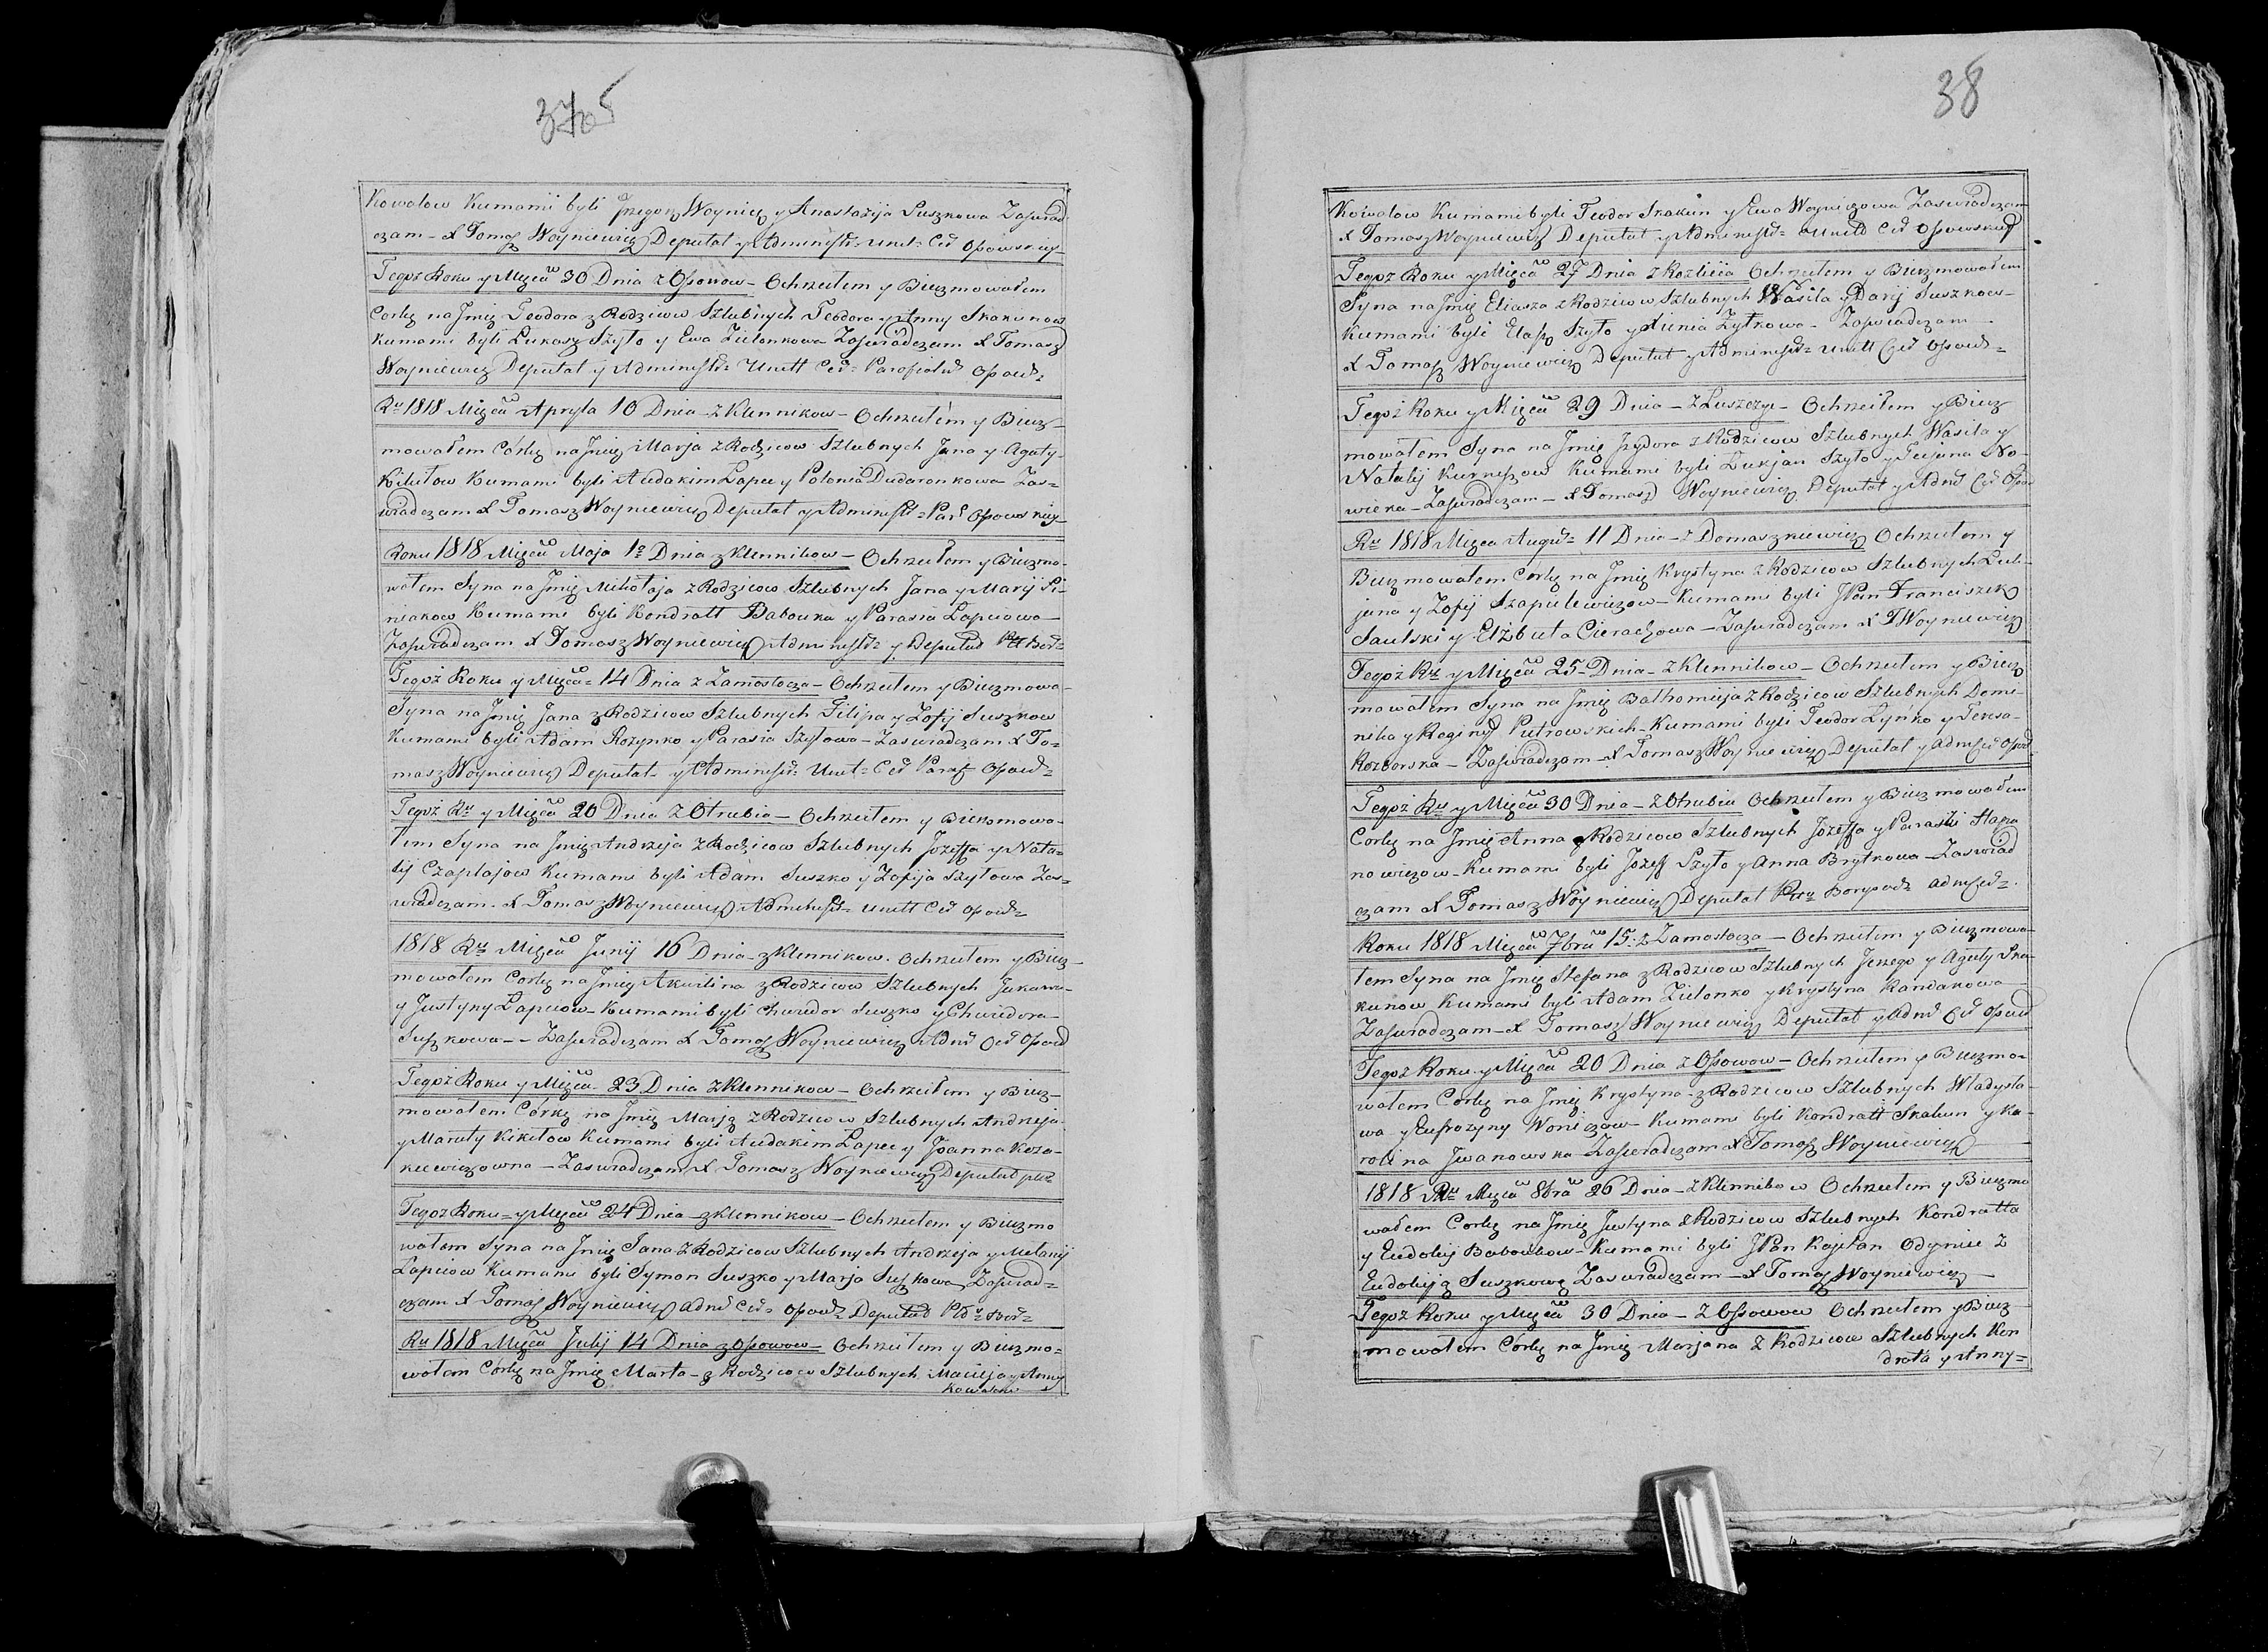 38
Kowalow Kumami byli Woynicz y Anastazija Suszkowa Zaswiad
czam - X Tomasz Woyniewicz Deputat y Administr= Unit= Cer Ossowskiey
Tegoż Roku y Mięca 30 Dnia z Ossowow - Ochrzciłem y Bierzmowałem
Corkę na Jmię Teodora z Rodzicow Szlubnych Teodora y Anny Skakunow
Kumami byli Łukasz Szyło y Ewa Zielonkowa Zaswiadczam X Tomasz
Woyniewicz Deputat y Administr= Unitt Cer= Ossow=
Ru 1818 Mięca Apryla 10 Dnia - z Klennikow - Ochrzciłem y Bierz
mowałem Córkę na Jmię Marja z Rodzicow Szlubnych Jana y Agaty
Kikitow Kumami byli Audakim Łapec y Polonia Dudaronkowa Zas=
wiadczam X Tomasz Woyniewicz Deputat y Administr= Par Ossowskiey
Roku 1818 Mięca Maja 1o Dnia z Klennikow - Ochrzciłem y Bierzmo-
wałem Syna na Jmię Mikołaja z Rodzicow Szlubnych Jana y Marij Pi-
niakow Kumami byli Kondratt Babouka y Parasia Łapciowa
Zaswiadczam X Tomasz Woyniewicz Administr= y Deputat
Tegoż Roku y Mięca= 14 Dnia z Zamostocza - Ochrzciłem y Bierzmowa-
Syna na Jmię Jana z Rodzicow Szlubnych Filipa y Zofij Suszkow
Kumami byli Adam Rożynko y Parasia Szyłowa - Zaswiadczam X To=
masz Woyniewicz Deputat y Administr= Unit= Cer Paraf Ossow=
Tegoż Ru y Mięca 20 Dnia z Otrubia - Ochrzciłem y Bierzmowa-
łem Syna na Jmię Andrzeja z Rodzicow Szlubnych Jozeffa y Nata=
lij Czaplajow Kumami byli Adam Suszko y Zofija Szyłowa Zas=
wiadczam - X Tomasz Woyniewicz Administr= Unitt Cer Ossow=
1818 Ru Mięca Junij 16 Dnia - z Klennikow - Ochrzciłem y Bierz
mowałem Corkę na Jmię Akwilina z Rodzicow Szlubnych
y Justyny Łapciow - Kumami byli Chwiedor Suszko y Chwiedora
Suszkowa -- Zaswiadczam X Tomasz Woyniewicz Adm Cer Ossow
Tegoż Roku y Mięca - 23 Dnia z Klennikow - Ochrzciłem y Bierz-
mowałem Córkę na Jmię Marją z Rodzicow Szlubnych Andrzeja
y Maruty Kikitow Kumami byli Audakim Łapec y Joanna Koza-
kiewiczowna - Zaswiadczam X Tomasz Woyniewicz Deputat
Tegoż Roku= y Mięca 24 Dnia - z Klennikow - Ochrzciłem y Bierzmo
wałem Syna na Jmię Jana z Rodzicow Szlubnych Andrzeja y Melanij
Łapciow Kumami byli Symon Suszko y Marja Suszkowa Zaswiad=
czam X Tomasz Woyniewicz Adm Cer= Ossow= Deputat
Ru 1818 Mięca Julij 14 Dnia z Ossowow - Ochrzciłem y Bierzmo=
wałem Córkę na Jmię Marta - z Rodzicow Szlubnych Macieja y Anny
Kowalow
Kowalow Kumami byli Teodor Skakun y Ewa Woyniczowa Zaswiadczam
X Tomasz Woyniewicz Deputat y Administr= Unitt Cer Ossowskiey
Tegoż Roku y Mięca 27 Dnia z Ochrzciłem y Bierzmowałem
Syna na Jmię Eliasza z Rodzicow Szlubnych Wasila y Darij Suszkow -
Kumami byli Szyło y Xienia Żytkowa - Zaswiadczam
X Tomasz Woyniewicz Deputat y Administr= Unitt Cer Ossow=
Tegoż Roku y Mięca 29 Dnia - z Łuszczyc - Ochrzciłem y Bierz
mowałem Syna na Jmię Jzydora z Rodzicow Szlubnych Wasila y
Natalij Kurneszow Kumami byli Łukjan Szyło y Tacjana No-
wicka - Zaswiadczam - X Tomasz Woyniewicz Deputat y Adm Cer Ossow
Ru 1818 Mięca Augus= 11 Dnia - z Domaszkiewicz Ochrzciłem y
Bierzmowałem Corkę na Jmię Krystyna z Rodzicow Szlubnych Łuk-
jana y Zofij Szapulewiczow - Kumami byli JPan Franciszek
Saulski y Elżbieta Cierachowa - Zaswiadczam X T Woyniewicz
Tegoż Ru y Mięca 25 - Dnia - z Klennikow - Ochrzciłem y Bierz
mowałem Syna na Jmię Bałtromieja z Rodzicow Szlubnych Domi-
nika y Reginy Putrowskich - Kumami byli Teodor Łyńko y Teresa
Kozborska - Zaswiadczam - X Tomasz Woyniewicz Deputat y Adm Cer Ossow
Tegoż Ru y Mięca 30 Dnia - z Otrubia Ochrzciłem y Bierzmowałem
Corkę na Jmię Anna z Rodzicow Szlubnych Jozeffa y Paraski Hapa
nowiczow - Kumami byli Jozeff Szyło y Anna Brytkowa - Zaswiad
czam X Tomasz Woyniewicz Deputat
Roku 1818 Mięca 7bra 15: z Zamostocza - Ochrzciłem y Bierzmowa-
łem Syna na Jmię Stefana z Rodzicow Szlubnych Jerzego y Agaty Ska-
kunow Kumami byli Adam Zielonko y Krystyna Kandakowa
Zaswiadczam - X Tomasz Woyniewicz Deputat y Adm Cer Ossow
Tegoż Roku y Mięca 20 Dnia z Ossowow - Ochrzciłem y Bierzmo-
wałem Corkę na Jmię Krystyna - z Rodzicow Szlubnych Władysła-
wa y Eufrozyny Woniczow - Kumami byli Kondratt Skakun y Ka-
rolina Jwanowska Zaswiadczam X Tomasz Woyniewicz
1818 Ru Mięca 8bra 26 Dnia - z Klennikow Ochrzciłem y Bierzmo
wałem Corkę na Jmię Justyna z Rodzicow Szlubnych Kondratta
y Eudokij Baboukow - Kumami byli JPan Kajetan Odyniec z
Eudokiją Suszkową Zaswiadczam - X Tomasz Woyniewicz
Tegoż Roku y Mięca 30 Dnia - z Ossowow Ochrzciłem y Bierz
mowałem Córkę na Jmię Marjana z Rodzicow Szlubnych Kon
drata y Anny=